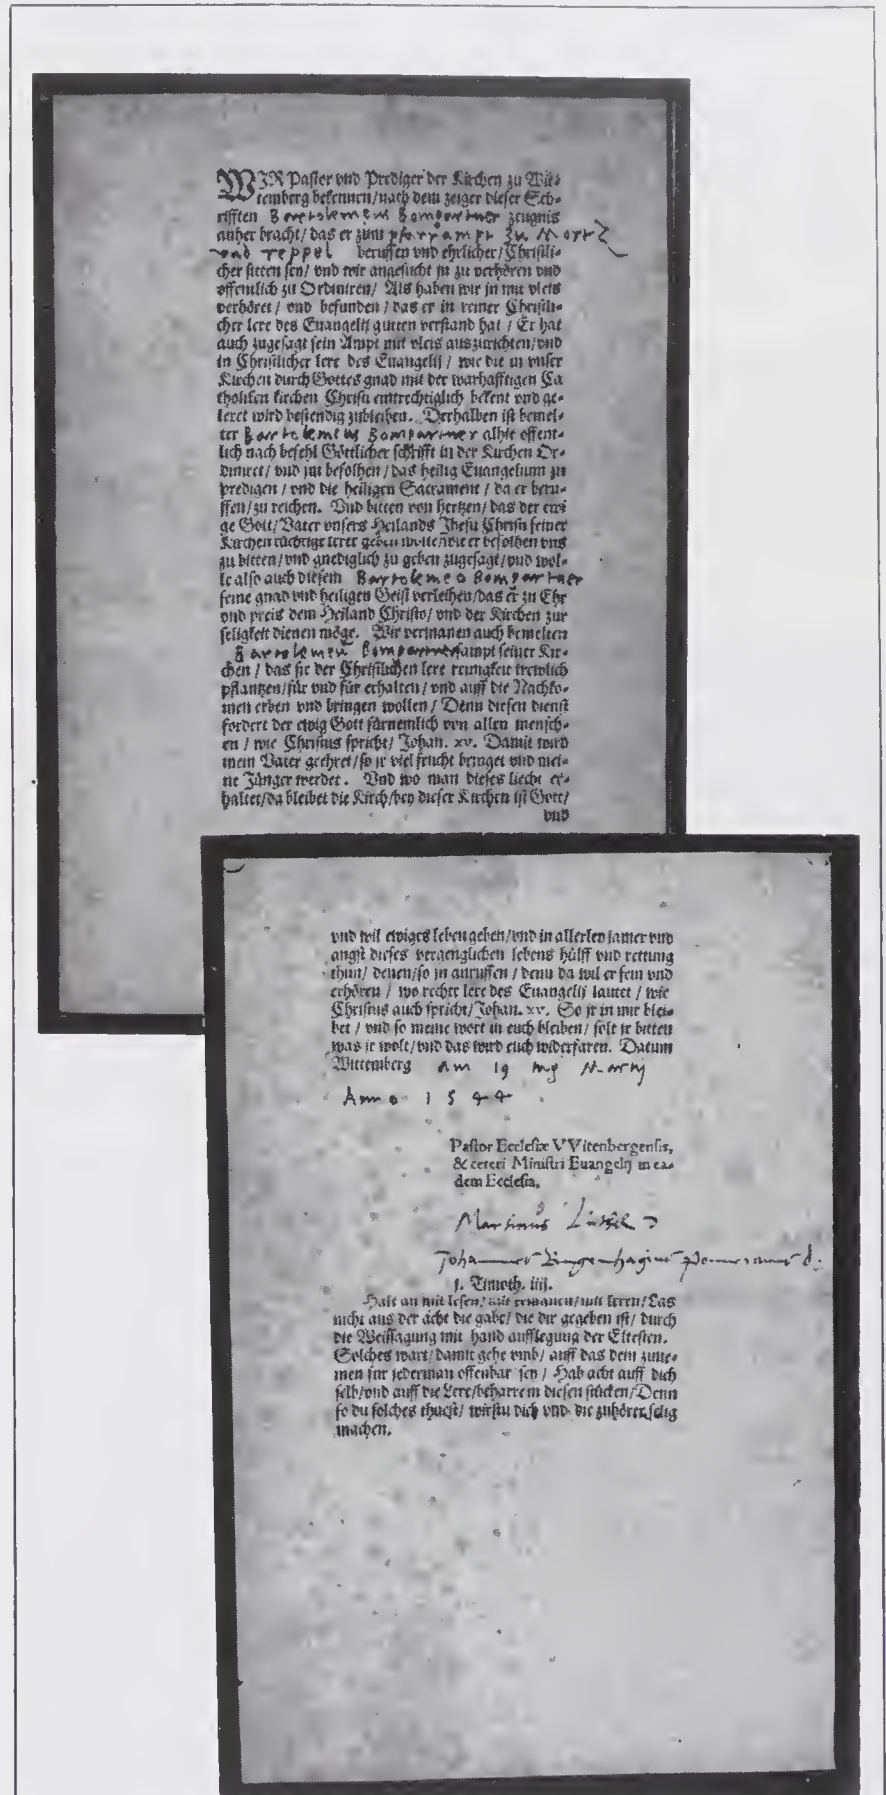 WIR Pastor vnd Prediger der Kirchen zu Wit-
temberg bekennen/nach dem zeiger dieser Sch-
rifften Bartolemeus Bomgartner zeugnis
anher bracht/das er zum pfarrampt zu Mortz
vnd reppel beruffen vnd ehrlicher/Christli-
cher sitten sey/vnd wir angesucht jn zu verhören vnd
offentlich zu Ordiniren/Als haben wir jn mit vleis
verhöret/vnd befunden/das er in reiner Christli-
cher lere des Euangelij gutten verstand hat/Er hat
auch zugesagt sein Ampt mit vleis auszurichten/vnd
in Christlicher lere des Euangelij/wie die in vnser
Kirchen durch Gottes gnad mit der warhafftigen Ca
tholiken kirchen Christi eintrechtiglich bekent vnd ge-
leret wird bestendig zubleiben. Derhalben ist bemel-
ter Bartolemeus Bomgartner alhie offent-
lich nach befehl Göttlicher schrifft in der Kirchen Or-
diniret/vnd jm befolhen/das heilig Euangelium zu
predigen/vnd die heiligen Sacrament/da er beru-
ffen/zu reichen. Vnd bitten von hertzen/das der ewi
ge Gott/Vater vnsers Heilands Jhesu Christi seiner
Kirchen tüchtige lerer geben wolle/wie er befolhen vns
zu bitten/vnd gnediglich zu geben zugesagt/vnd wol-
le also auch diesem Bartolemeo Bomgartner
seine gnad vnd heiligen Geist verleihen/das er zu Ehr
vnd preis dem Heiland Christo/vnd der Kirchen zur
seligkeit dienen möge. Wir vermanen auch bemelten
Bartolemeu Bomgartner sampt seiner Kir-
chen/das sie der Christlichen lere reinigkeit trewlich
pflantzen/für vnd für erhalten/vnd auff die Nachko-
men erben vnd bringen wollen/Denn diesen dienst
fordert der ewig Gott fürnemlich von allen mensch-
en/wie Christus spricht/Johan. xv. Damit wird
mein Vater geehret/so jr viel frucht bringet vnd mei-
ne Jünger werdet. Vnd wo man dieses liecht er-
haltet/da bleibet die Kirch/bey dieser Kirchen ist Gott/
vnd
vnd wil ewiges leben geben/vnd in allerley jamer vnd
angst dieses vergenglichen lebens hülff vnd rettung
thun/denen/so jn anruffen/denn da wil er sein vnd
erhören/wo rechter lere des Euangelij lautet/wie
Christus auch spricht/Johan. xv. So jr in mir blei-
bet/vnd so meine wort in euch bleiben/solt jr bitten
was jr wolt/vnd das wird euch widerfaren. Datum
Wittemberg Am 19 Martij
Anno 1544
Pastor Ecclesiæ VVitenbergensis,
& ceteri Ministri Euangelij in ea-
dem Ecclesia.
Martinus Luther D
Johannes Bugenhagius pomeranus d.
1. Timoth. iiij.
Halt an mit lesen/mit ermanen/mit leren/Las
nicht aus der acht die gabe/die dir gegeben ist/durch
die Weissagung mit hand aufflegung der Eltesten.
Solches wart/damit gehe vmb/auff das dein zune-
men für jederman offenbar sey/Hab acht auff dich
selb/vnd auff die Lere/beharre in diesen stücken/Denn
so du solches thuest/wirstu dich vnd die zuhörer selig
machen.